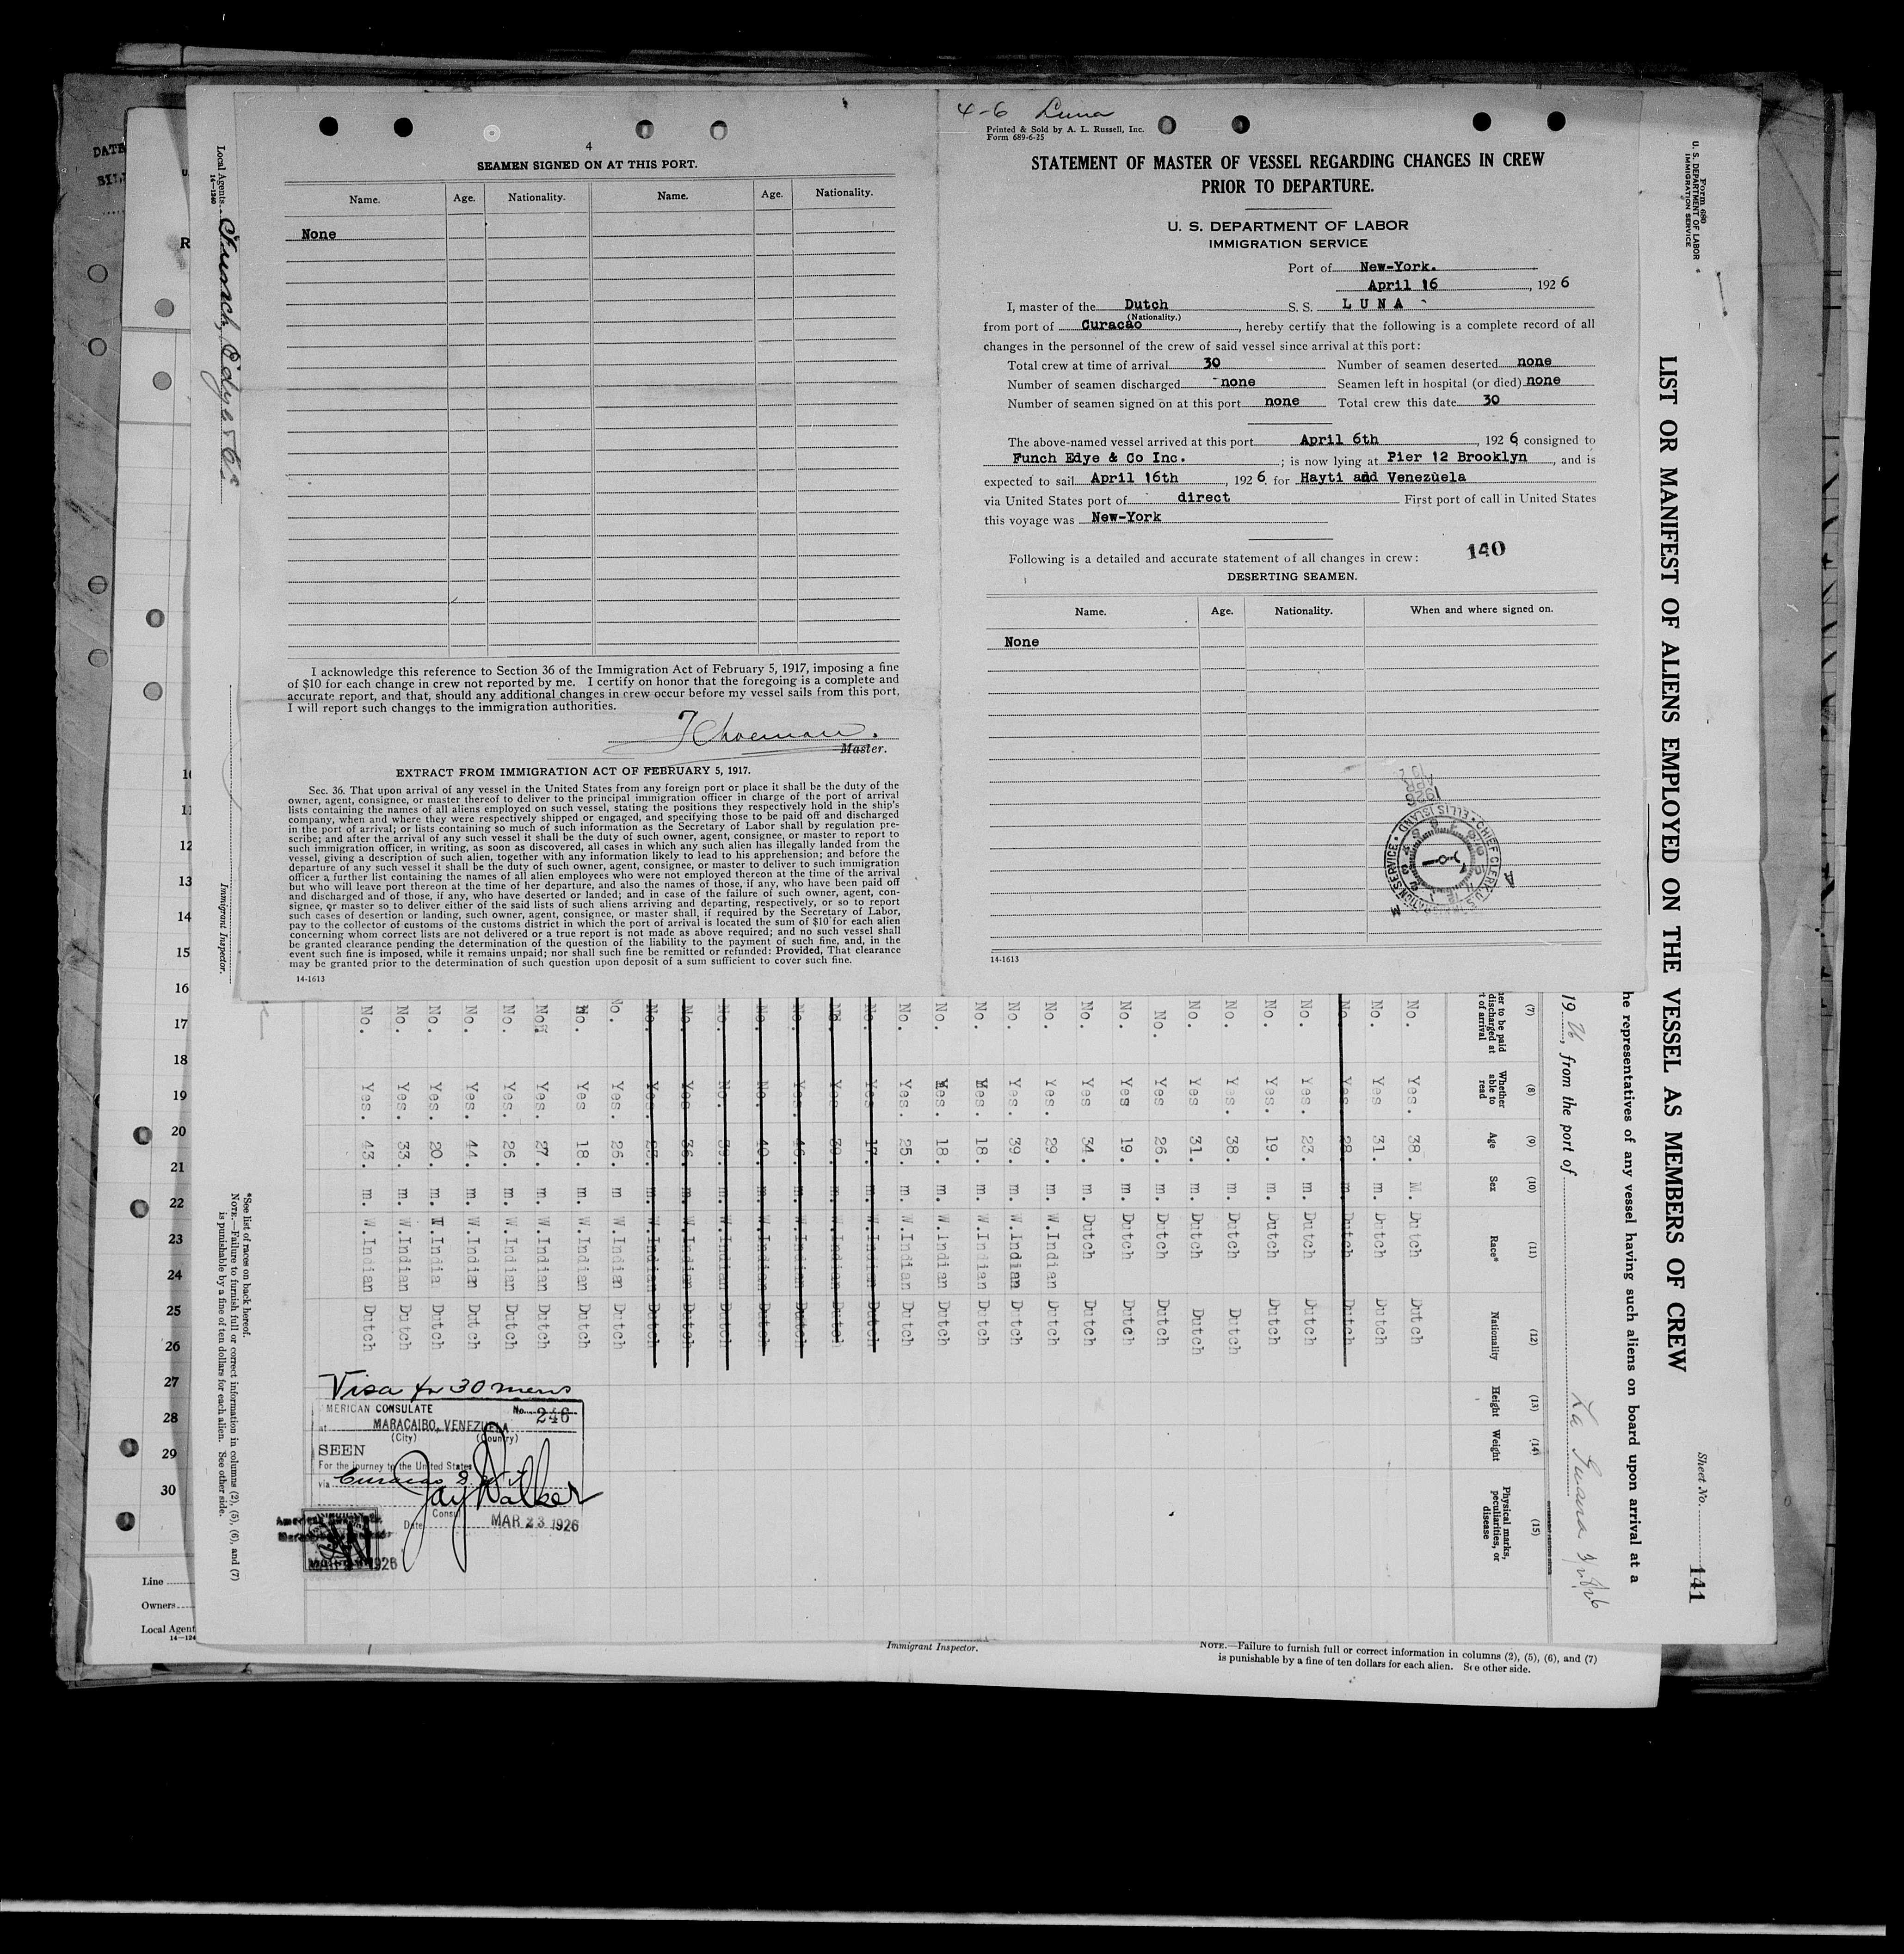 4
SEAMEN SIGNED ON AT THIS PORT.
Name. Age. Nationality. Name. Age. Nationality.
None
I acknowledge this reference to Section 36 of the Immigration Act of February 5, 1917, imposing a fine
of $10 for each change in crew not reported by me. I certify on honor that the foregoing is a complete and
accurate report, and that, should any additional changes in crew occur before my vessel sails from this port,
I will report such changes to the immigration authorities.
Master.
EXTRACT FROM IMMIGRATION ACT OF FEBRUARY 5, 1917.
Sec. 36. That upon arrival of any vessel in the United States from any foreign port or place it shall be the duty of the
owner, agent, consignee, or master thereof to deliver to the principal immigration officer in charge of the port of arrival
lists containing the names of all aliens employed on such vessel, stating the positions they respectively hold in the ship's
company, when and where they were respectively shipped or engaged, and specifying those to be paid off and discharged
in the port of arrival; or lists containing so much of such information as the Secretary of Labor shall by regulation pre-
scribe; and after the arrival of any such vessel it shall be the duty of such owner, agent, consignee, or master to report to
such immigration officer, in writing, as soon as discovered, all cases in which any such alien has illegally landed from the
vessel, giving a description of such alien, together with any information likely to lead to his apprehension; and before the
departure of any such vessel it shall be the duty of such owner, agent, consignee, or master to deliver to such immigration
officer a further list containing the names of all alien employees who were not employed thereon at the time of the arrival
but who will leave port thereon at the time of her departure, and also the names of those, if any, who have been paid off
and discharged and of those, if any, who have deserted or landed; and in case of the failure of such owner, agent, con-
signee, or master so to deliver either of the said lists of such aliens arriving and departing, respectively, or so to report
such cases of desertion or landing, such owner, agent, consignee, or master shall, if required by the Secretary of Labor,
pay to the collector of customs of the customs district in which the port of arrival is located the sum of $10 for each alien
concerning whom correct lists are not delivered or a true report is not made as above required; and no such vessel shall
be granted clearance pending the determination of the question of the liability to the payment of such fine, and, in the
event such fine is imposed, while it remains unpaid; nor shall such fine be remitted or refunded: Provided, That clearance
may be granted prior to the determination of such question upon deposit of a sum sufficient to cover such fine.
14-1613
4-6 Luna
Printed & Sold by A. L. Russell, Inc.
Form 689-6-25
STATEMENT OF MASTER OF VESSEL REGARDING CHANGES IN CREW
PRIOR TO DEPARTURE.
U. S. DEPARTMENT OF LABOR
IMMIGRATION SERVICE
Port of New-York.
April 16, 1926
I, master of the Dutch S. S. LUNA
(Nationality.)
from port of Curacao, hereby certify that the following is a complete record of all
changes in the personnel of the crew of said vessel since arrival at this port:
Total crew at time of arrival 30 Number of seamen deserted none
Number of seamen discharged none Seamen left in hospital (or died) none
Number of seamen signed on at this port none Total crew this date 30
The above-named vessel arrived at this port April 6th, 1926 consigned to
Funch Edye & Co Inc.; is now lying at Pier 12 Brooklyn, and is
expected to sail April 16th, 1926. for Hayti and Venezuela
via United States port of direct First port of call in United States
this voyage was New-York
Following is a detailed and accurate statement of all changes in crew: 140
DESERTING SEAMEN.
Name. Age. Nationality. When and where signed on.
None
14-1613
Form 680
U. S. DEPARTMENT OF LABOR
IMMIGRATION SERVICE
LIST OR MANIFEST OF ALIENS EMPLOYED ON THE VESSEL AS MEMBERS OF CREW
Sheet No.
141
he representatives of any vessel having such aliens on board upon arrival at a
1926, from the port of La Guaira
(7) (8) (9) (10) (11) (12) (13) (14) (15)
her to be paid discharged at t of arrival
Whether able to read
Age
Sex
Race*
Nationality
Height
Weight
Physical marks, peculiarities, or disease
No. Yes. 38. M. Dutch Dutch
No. Yes 31. m. Dutch Dutch
No. Yes. 28. m. Dutch Dutch
No. Yes. 23. m. Dutch Dutch
No. Yes. 19. m. Dutch Dutch
No. Yes. 38. m. Dutch Dutch
No. Yes 31. m. Dutch Dutch
No. Yes 26. m. Dutch Dutch
No. Yes 19. m. Dutch Dutch
No. Yes 34. m. Dutch Dutch
No. Yes. 29. m. W.Indian Dutch
No. Yes. 39. m. W.Indian Dutch
No. Yes. 18. m. W.Indian Dutch
No. Yes. 18. m. W.indian Dutch
No. Yes. 25. m. W.Indian Dutch
No. Yes 17. m. W.Indian Dutch
No. Yes 30. m. W.Indian Dutch
No. Yes. 46. m. W.Indian Dutch
No. No. 40. m. W.Indian Dutch
No. No. 39. m. W.Indian Dutch
No. Yes 36. m. W.Indian Dutch
No. Yes. 27. m. W.Indian Dutch
No. Yes. 26. m W.Indian Dutch
No. Yes 18. m. W.Indian Dutch
No. Yes. 27. m. W.Indian Dutch
No. Yes. 26. m. W.Indian Dutch
No. Yes. 44. m. W.Indian Dutch
No. Yes. 20. m. India Dutch
No. Yes. 33. m. W.Indian Dutch
No. Yes. 43. m. W.Indian Dutch
Visa for 30 mens
MERICAN CONSULATE No. 246
at MARACAIBO, VENEZUELA
(City) (Country)
SEEN
For the journey to the United States
via Curacao D. W. I.
Jay Walker
Consul
Date MAR 23 1926
Local Agents Funch, Edye & Co
14-1240
Immigrant Inspector.
*See list of races on back hereof.
NOTE.—Failure to furnish full or correct information in columns (2), (5), (6), and (7)
is punishable by a fine of ten dollars for each alien. See other side.
DATE
R
10
11
12
13
14
15
16
17
18
19
20
21
22
23
24
25
26
27
28
29
30
Line
Owners
Local Agent
14-124
Immigrant Inspector.
NOTE.—Failure to furnish full or correct information in columns (2), (5), (6), and (7)
is punishable by a fine of ten dollars for each alien. See other side.